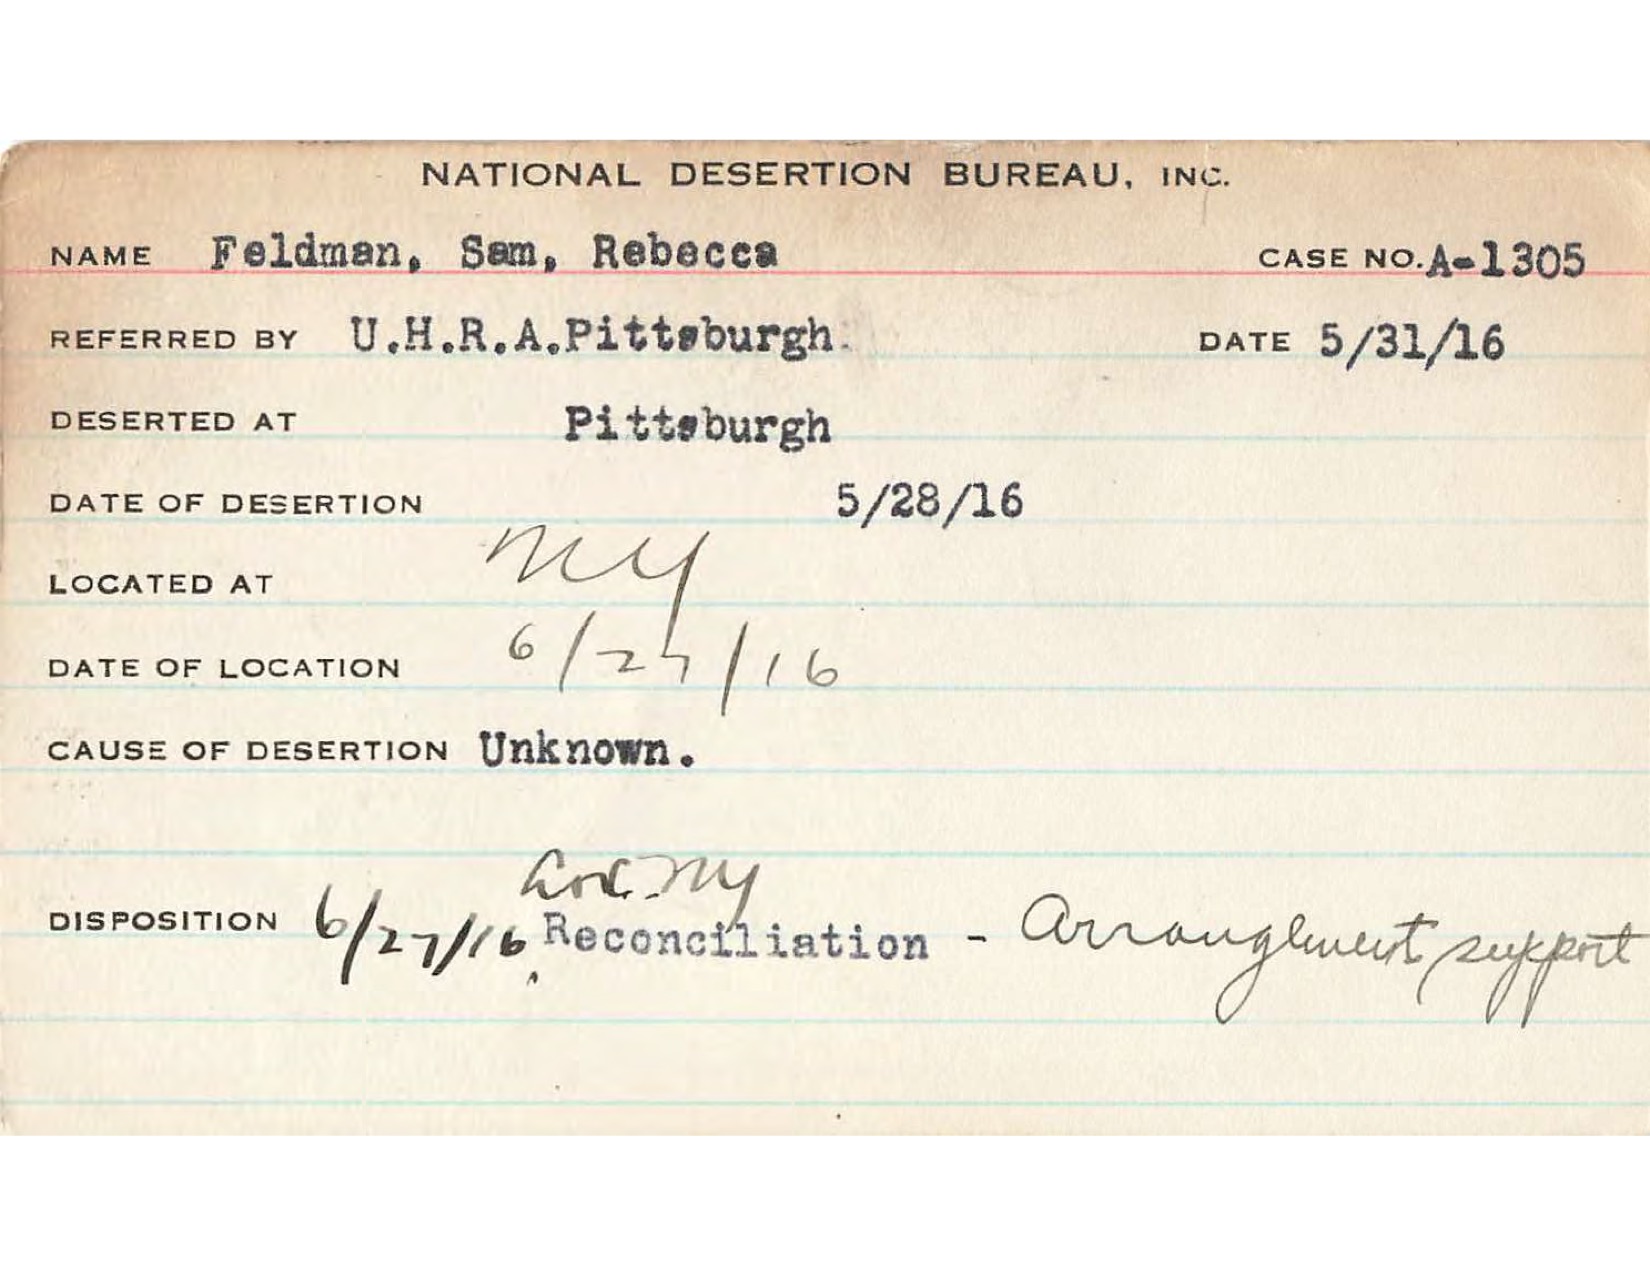 NATIONAL DESERTION BUREAU, INC.
NAME Feldman, Sam, Rebecca CASE NO. A-1305
REFERRED BY U.H.R.A.Pittsburgh. DATE 5/31/16
DESERTED AT Pittsburgh
DATE OF DESERTION 5/28/16
LOCATED AT NY
DATE OF LOCATION 6/27/16
CAUSE OF DESERTION Unknown.
Loc. NY
DISPOSITION 6/27/16 Reconciliation - Arrangement support